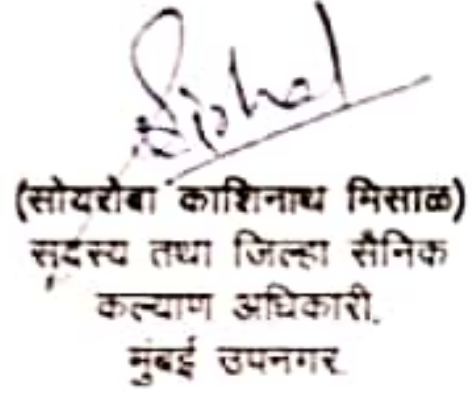 (सोयरोबा काशिनाथ मिसाळ)
सदस्य तथा जिल्हा सैनिक
कल्याण अधिकारी.
मुंबई उपनगर.